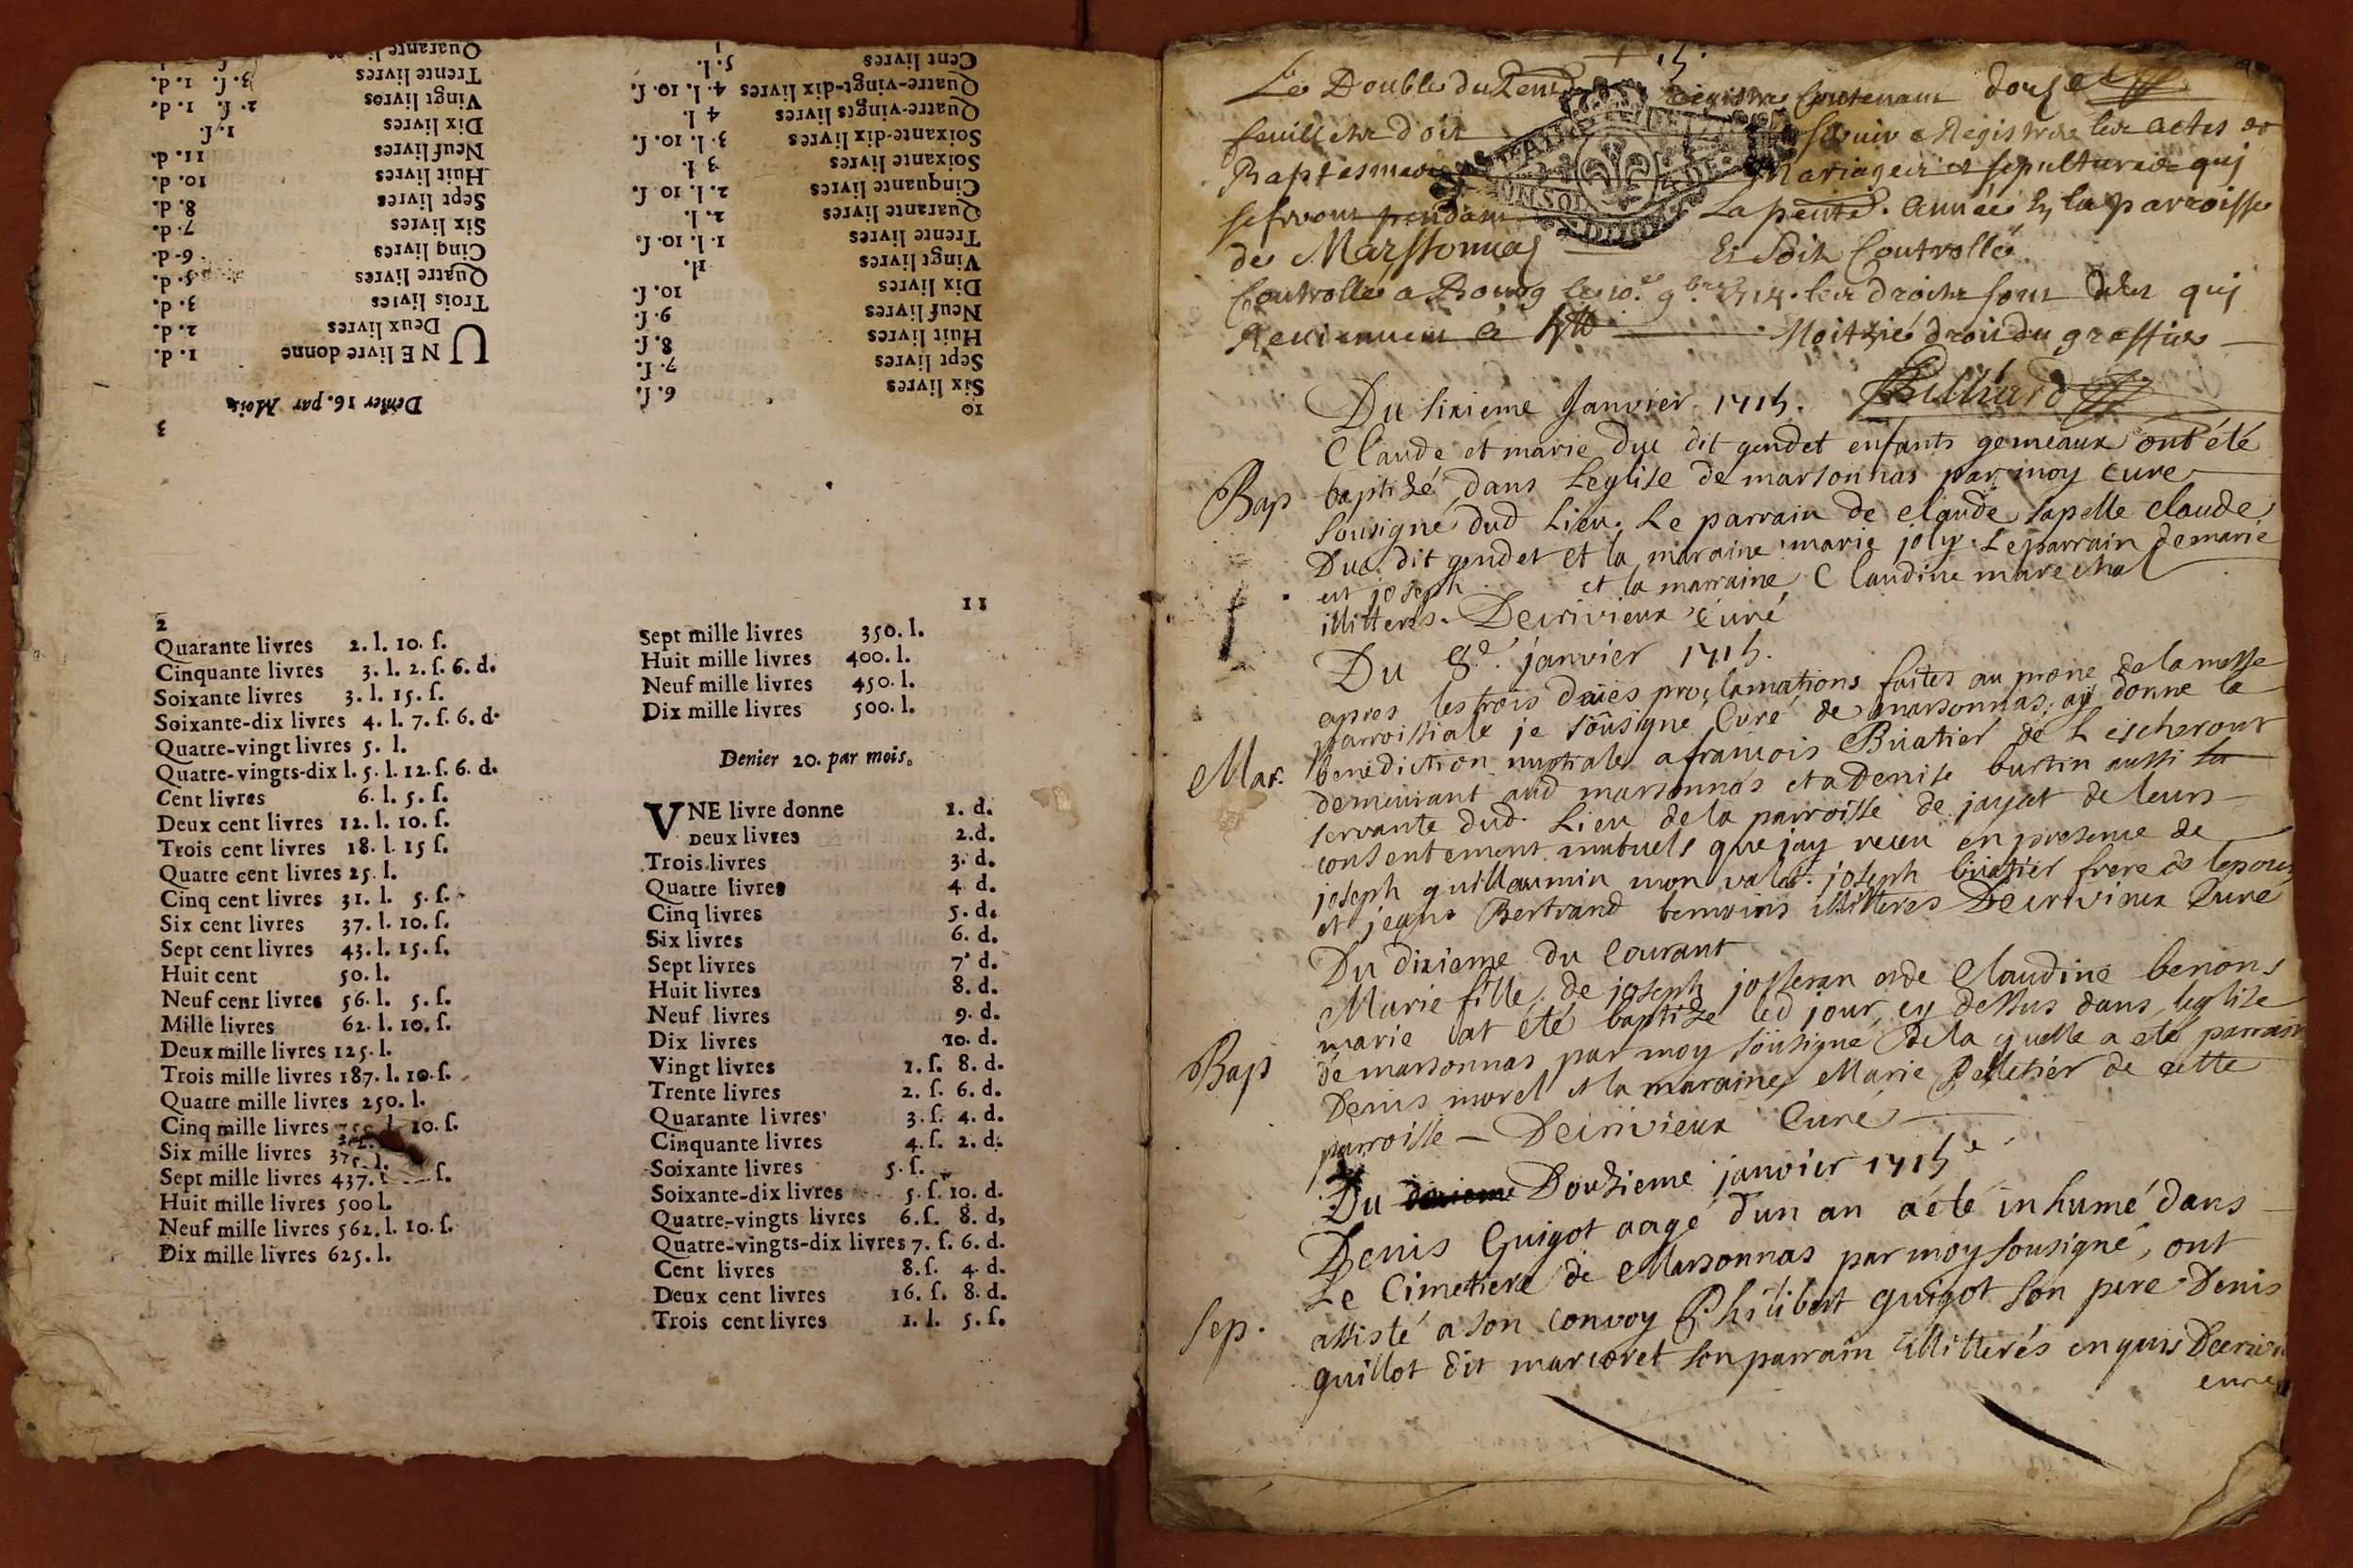 Quarante livres
Trente livres 3. ſ. 1. d.
Vingt livres 2. ſ. 1. d.
Dix livres 1. ſ.
Neuf livres 11. d.
Huit livres 10. d.
Sept livres 8. d.
Six livres 7. d.
Cinq livres 6. d.
Quatre livres 5. d.
Trois livres 3. d.
Deux livres 2. d.
UNE livre donne 1. d.
Denier 16. par Mois
3
Cent livres 5. l.
Quatre-vingt-dix livres 4. l. 10. ſ.
Quatre-vingts livres 4 l.
Soixante-dix livres 3. l. 10. ſ.
Soixante livres 3 l.
Cinquante livres 2. l. 10 ſ.
Quarante livres 2. l.
Trente livres 1. l. 10. ſ.
Vingt livres 1l.
Dix livres 10. ſ.
Neuf livres 9. ſ.
Huit livres 8. ſ.
Sept livres 7. ſ.
Six livres 6. ſ.
10
2
Quarante livres 2. l. 10. ſ.
Cinquante livres 3. l. 2. ſ. 6. d.
Soixante livres 3. l. 15. ſ.
Soixante-dix livres 4. l. 7. ſ. 6. d.
Quatre-vingt livres 5. l.
Quatre-vingts-dix l. 5. l. 12. ſ. 6. d.
Cent livres 6. l. 5. ſ.
Deux cent livres 12. l. 10. ſ.
Trois cent livres 18. l. 15 ſ.
Quatre cent livres 25. l.
Cinq cent livres 31. l. 5. ſ.
Six cent livres 37. l. 10. ſ.
Sept cent livres 43. l. 15. ſ.
Huit cent 50. l.
Neuf cent livres 56. l. 5. ſ.
Mille livres 62. l. 10. ſ.
Deux mille livres 125. l.
Trois mille livres 187. l. 10. ſ.
Quatre mille livres 250. l.
Cinq mille livres 10. ſ.
Six mille livres 375. l.
Sept mille livres 437. ſ.
Huit mille livres 500 l.
Neuf mille livres 562. l. 10. ſ.
Dix mille livres 625. l.
11
Sept mille livres 350. l.
Huit mille livres 400. l.
Neuf mille livres 450. l.
Dix mille livres 500. l.
Denier 20. par mois.
VNE livre donne 1. d.
Deux livres 2. d.
Trois livres 3. d.
Quatre livres 4 d.
Cinq livres 5. d.
Six livres 6. d.
Sept livres 7 d.
Huit livres 8. d.
Neuf livres 9. d.
Dix livres 10. d.
Vingt livres 1. ſ. 8. d.
Trente livres 2. ſ. 6. d.
Quarante livres 3. ſ. 4. d.
Cinquante livres 4. ſ. 2. d.
Soixante livres 5. ſ.
Soixante-dix livres 5. ſ. 10. d.
Quatre-vingts livres 6. ſ. 8. d,
Quatre-vingts-dix livres 7. ſ. 6. d.
Cent livres 8. ſ. 4. d.
Deux cent livres 16. ſ. 8. d.
Trois cent livres 1. l. 5. ſ.
Le Double du registre Contenant douze
feuillets doit servir a Registrer les actes de
Baptesmes Mariages et sepultures qui
se feront pendant La pente. Année En la parroisse
de Marssonnas Et Soit Controllé
Controllé a Bourg le 10.e 9bre 1714. les droits sont deus qui
Reviennent a Moitié droit du greffier
Du sixieme Janvier 1715. Billiard
Claude et marie Duc dit gendet enfants gemeaux ont été
Bap baptizé dans Leglise de marsonnas par moy Curé
sousigné dud Lieu. Le parrain de claude sapelle claude
Duc dit gendet et la maraine marie joly. Le parrain de marie
est joseph et la marraine Claudine marechal
illitteres. Decrivieux Curé
Du 8.e janvier 1715.
apres les trois dûes proclamations faites au prone de la messe
parroissiale je sousigné Curé de marsonnas ay donné la
Mar. benediction nuptiale a francois Buatier de Lescheroux
demeurant aud marsonnas et a Denise burtin aussi
servante dud. Lieu de la parroisse de jayat de leurs
consentement mutuels que jay receu en presence de
joseph guillaumin mon valet. joseph buatier frere de lepoux
et jeans Bertrand temoins illitteres Decrivieux Curé
Du dixieme du Courant
Marie fille de joseph josseran et de Claudine benons
marie at été baptizé led jour cy dessus dans leglise
Bap de marsonnas par moy sousigné de la quelle a eté parrain
Denis morel et la maraine Marie Pelletier de cette
parroisse — Decrivieux Curé
Du dixieme Douzieme janvier 1715
Denis Guigot aagé dun an a eté inhumé dans
Le Cimetiere de Marsonnas par moy sousigné, ont
Sep. assisté a son convoy Philibert guigot son pere Denis
guillot dit marcoret son parrain illitterés enquis Decrivi
curé